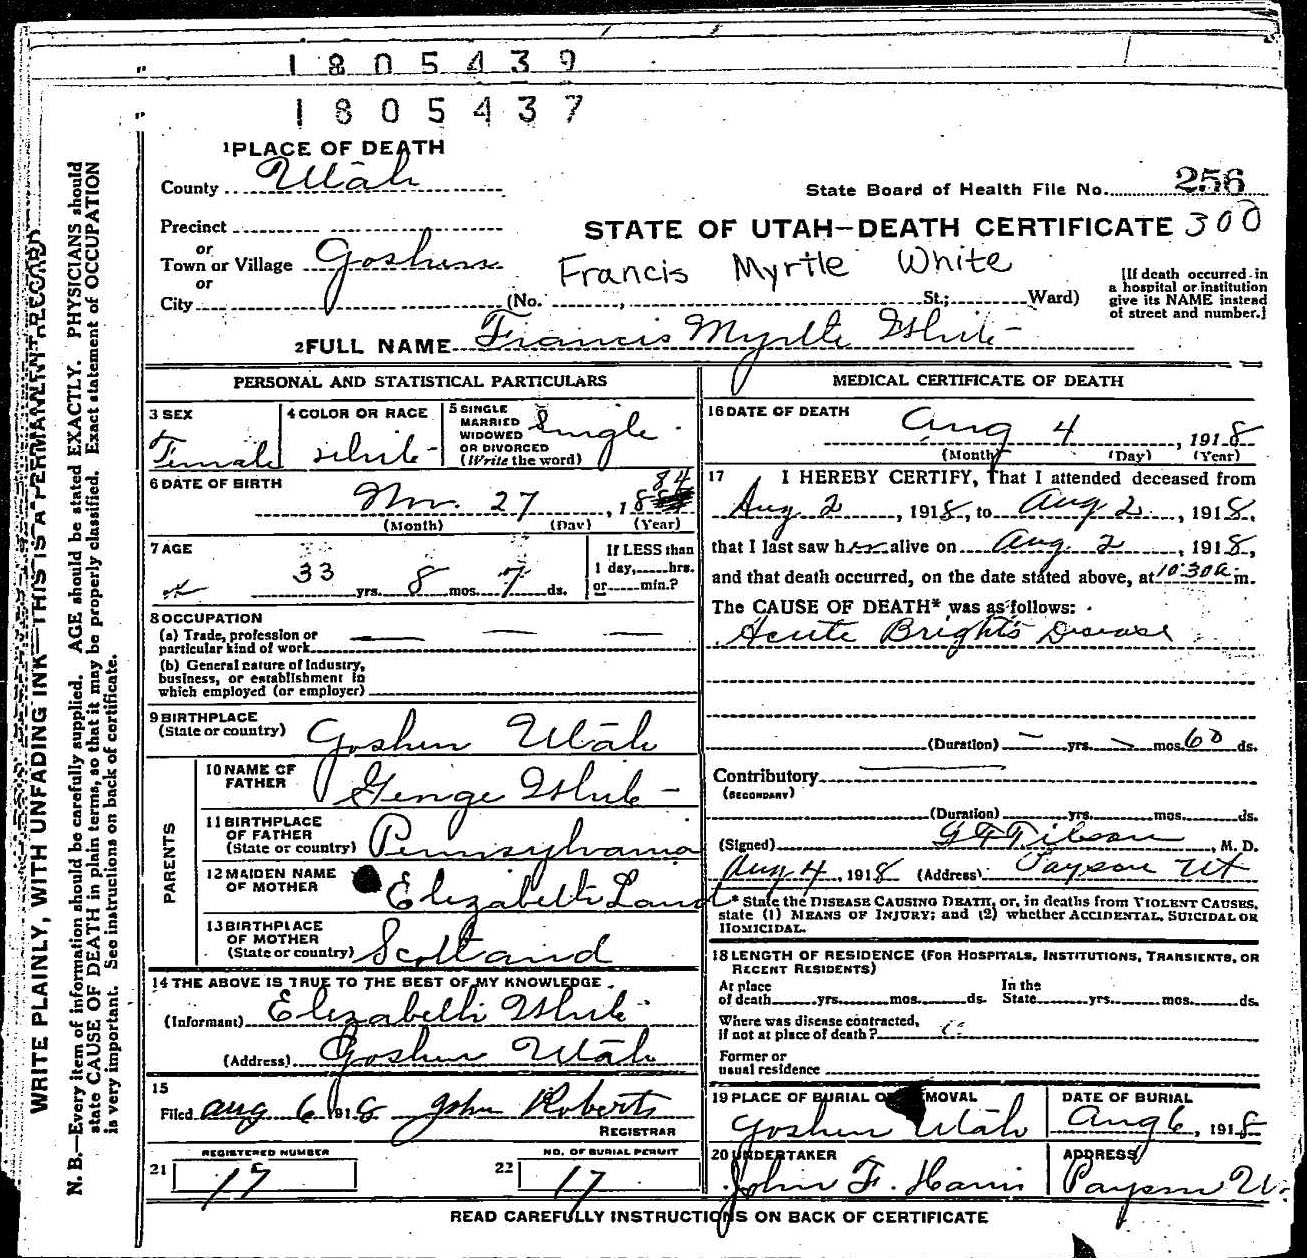 1 8 0 5 4 3 9
1 8 0 5 4 3 7
1 PLACE OF DEATH
County Utah
State Board of Health File No. 256
Precinct
or
Town or Village Goshen
or
City (No. , St.; Ward)
STATE OF UTAH—DEATH CERTIFICATE 300
Francis Myrtle White
[If death occurred in
a hospital or institution
give its NAME instead
of street and number.]
2 FULL NAME Francis Myrtle White
PERSONAL AND STATISTICAL PARTICULARS
3 SEX
Female
4 COLOR OR RACE
white
5 SINGLE
MARRIED
WIDOWED
OR DIVORCED
(Write the word)
Single
6 DATE OF BIRTH
Nov. 27, 1884
(Month) (Day) (Year)
7 AGE
33 yrs. 8 mos. 7 ds.
If LESS than
1 day, hrs.
or min.?
8 OCCUPATION
(a) Trade, profession or
particular kind of work
(b) General nature of Industry,
business, or establishment in
which employed (or employer)
9 BIRTHPLACE
(State or country) Goshen Utah
PARENTS
10 NAME OF
FATHER George White
11 BIRTHPLACE
OF FATHER
(State or country) Pennsylvania
12 MAIDEN NAME
OF MOTHER Elizabeth Land
13 BIRTHPLACE
OF MOTHER
(State or country) Scotland
14 THE ABOVE IS TRUE TO THE BEST OF MY KNOWLEDGE.
(Informant) Elizabeth White
(Address) Goshen Utah
15
Filed Aug 6 1918 John Roberts
REGISTRAR
21 REGISTERED NUMBER
17
22 NO. OF BURIAL PERMIT
17
MEDICAL CERTIFICATE OF DEATH
16 DATE OF DEATH
Aug 4, 1918
(Month) (Day) (Year)
17 I HEREBY CERTIFY, That I attended deceased from
Aug 2, 1918, to Aug 2, 1918,
that I last saw her alive on Aug 2, 1918,
and that death occurred, on the date stated above, at 10:30 a m.
The CAUSE OF DEATH* was as follows:
Acute Bright's Disease
(Duration) yrs. mos. 60 ds.
Contributory
(SECONDARY)
(Duration) yrs. mos. ds.
(Signed) Gibson, M. D.
Aug 4, 1918 (Address) Payson Ut
* State the DISEASE CAUSING DEATH, or, in deaths from VIOLENT CAUSES,
state (1) MEANS OF INJURY; and (2) whether ACCIDENTAL, SUICIDAL OR
HOMICIDAL.
18 LENGTH OF RESIDENCE (FOR HOSPITALS, INSTITUTIONS, TRANSIENTS, OR
RECENT RESIDENTS)
At place
of death yrs. mos. ds.
In the
State yrs. mos. ds.
Where was disease contracted,
if not at place of death?
Former or
usual residence
19 PLACE OF BURIAL OR REMOVAL
Goshen Utah
DATE OF BURIAL
Aug 6, 1918
20 UNDERTAKER
John F.
ADDRESS
Payson U
READ CAREFULLY INSTRUCTIONS ON BACK OF CERTIFICATE
WRITE PLAINLY, WITH UNFADING INK—THIS IS A PERMANENT RECORD
N. B.—Every item of information should be carefully supplied. AGE should be stated EXACTLY. PHYSICIANS should
state CAUSE OF DEATH in plain terms, so that it may be properly classified. Exact statement of OCCUPATION
is very important. See instructions on back of certificate.